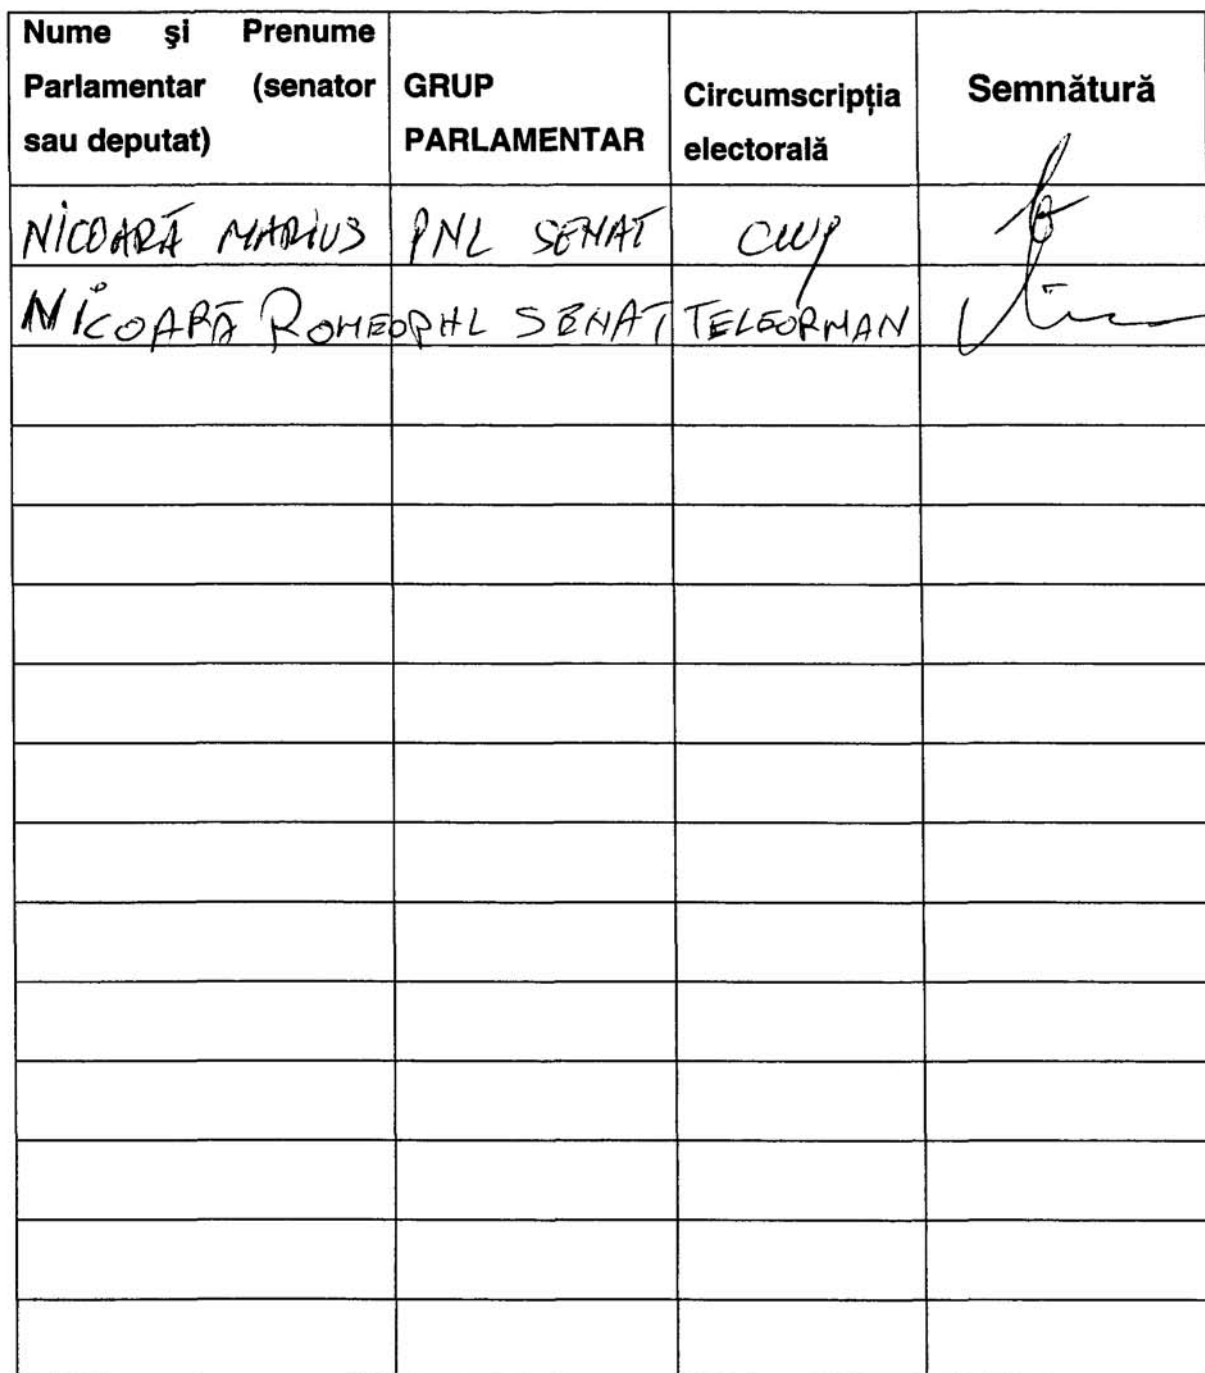 Nume şi Prenume
Parlamentar (senator
sau deputat)
GRUP
PARLAMENTAR
Circumscripţia
electorală
Semnătură
NICOARĂ MARIUS PNL SENAT CLUJ
NICOARĂ ROMEO PNL SENAT TELEORMAN